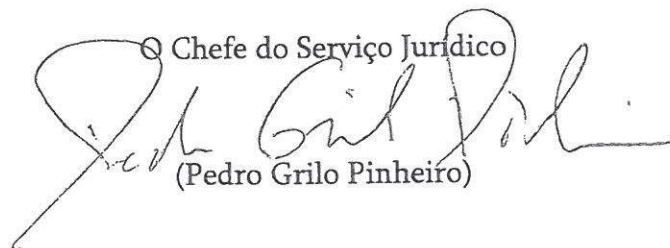 O Chefe do Serviço Jurídico
Pedro Grilo Pinheiro
(Pedro Grilo Pinheiro)